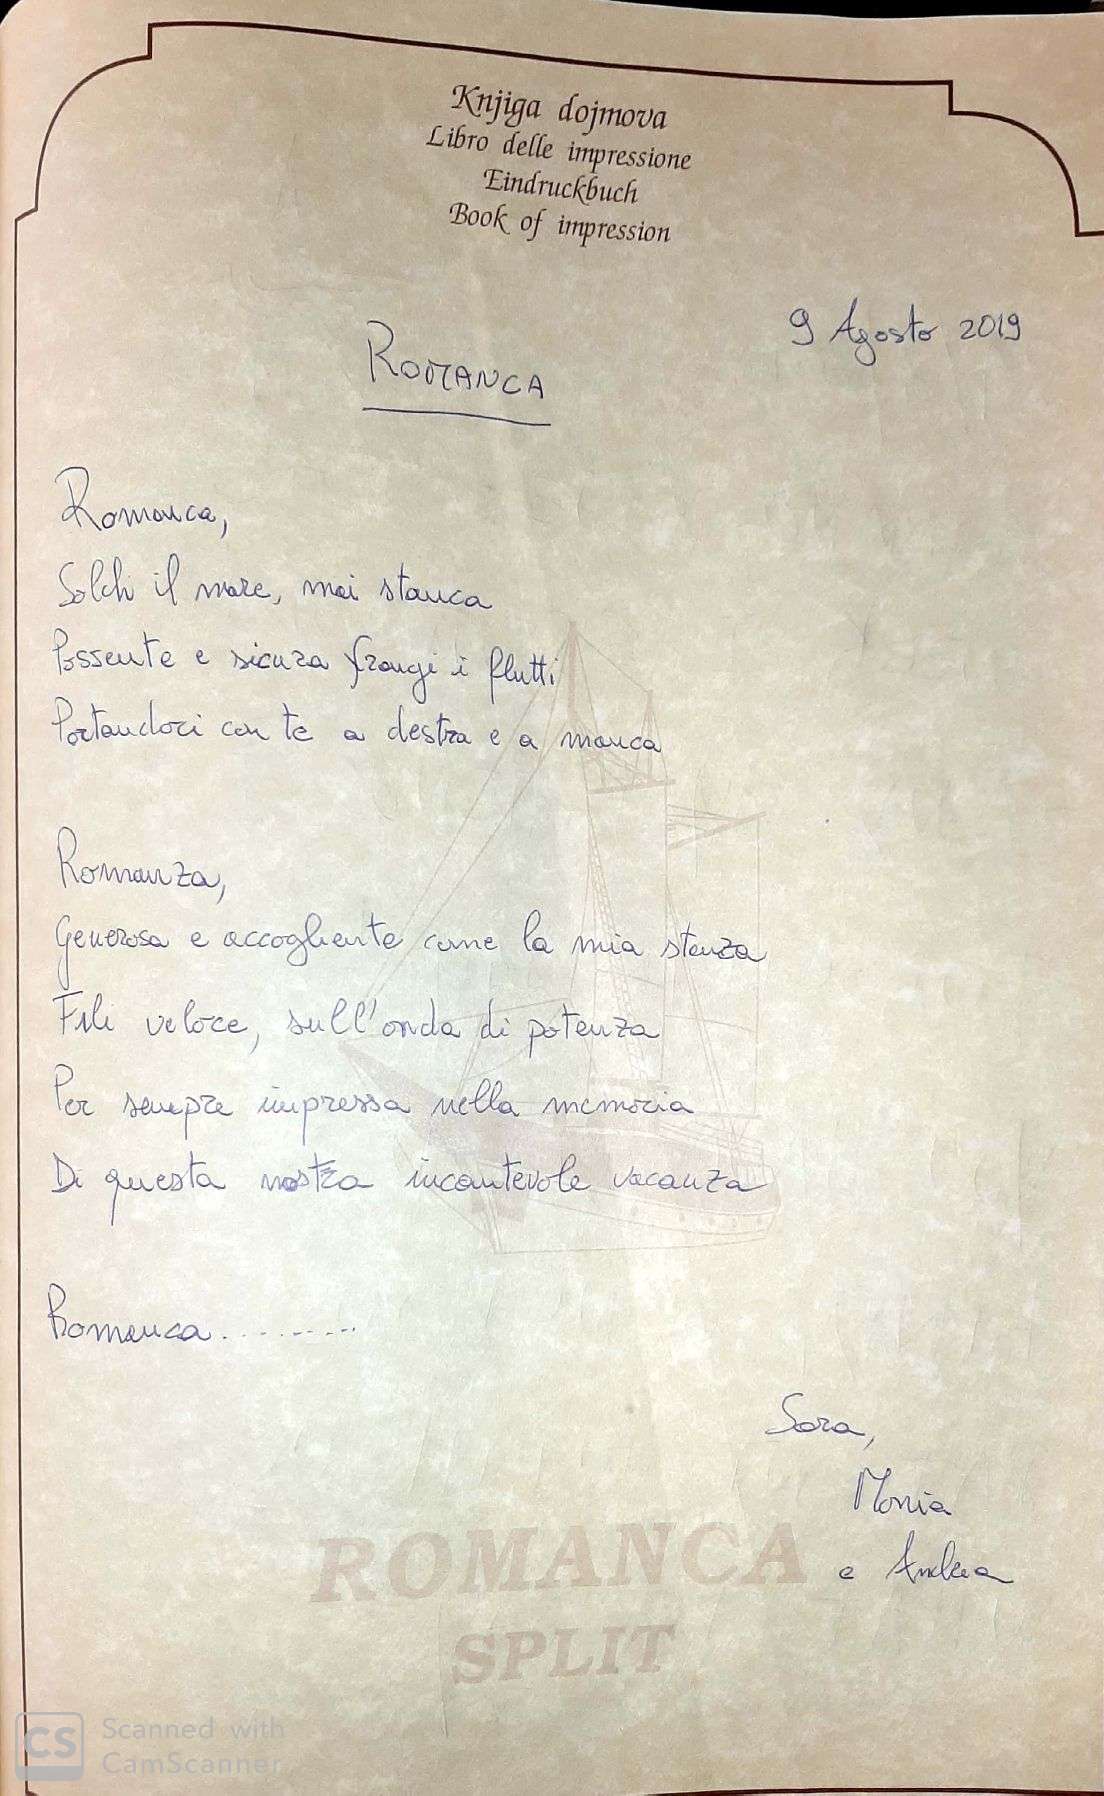 Knjiga dojmova
Libro delle impressione
Eindruckbuch
Book of impression
9 Agosto 2019
ROMANCA
Romanca,
Solchi il mare, mai stanca
Possente e sicura frangi i flutti
Portandoci con te a destra e a manca
Romanza,
Generosa e accogliente come la mia stanza
Fili veloce, sull'onda di potenza
Per sempre impressa nella memoria
Di questa nostra incantevole vacanza
Romanca.........
Sara,
Monia
e Andrea
ROMANCA
SPLIT
CS Scanned with
CamScanner